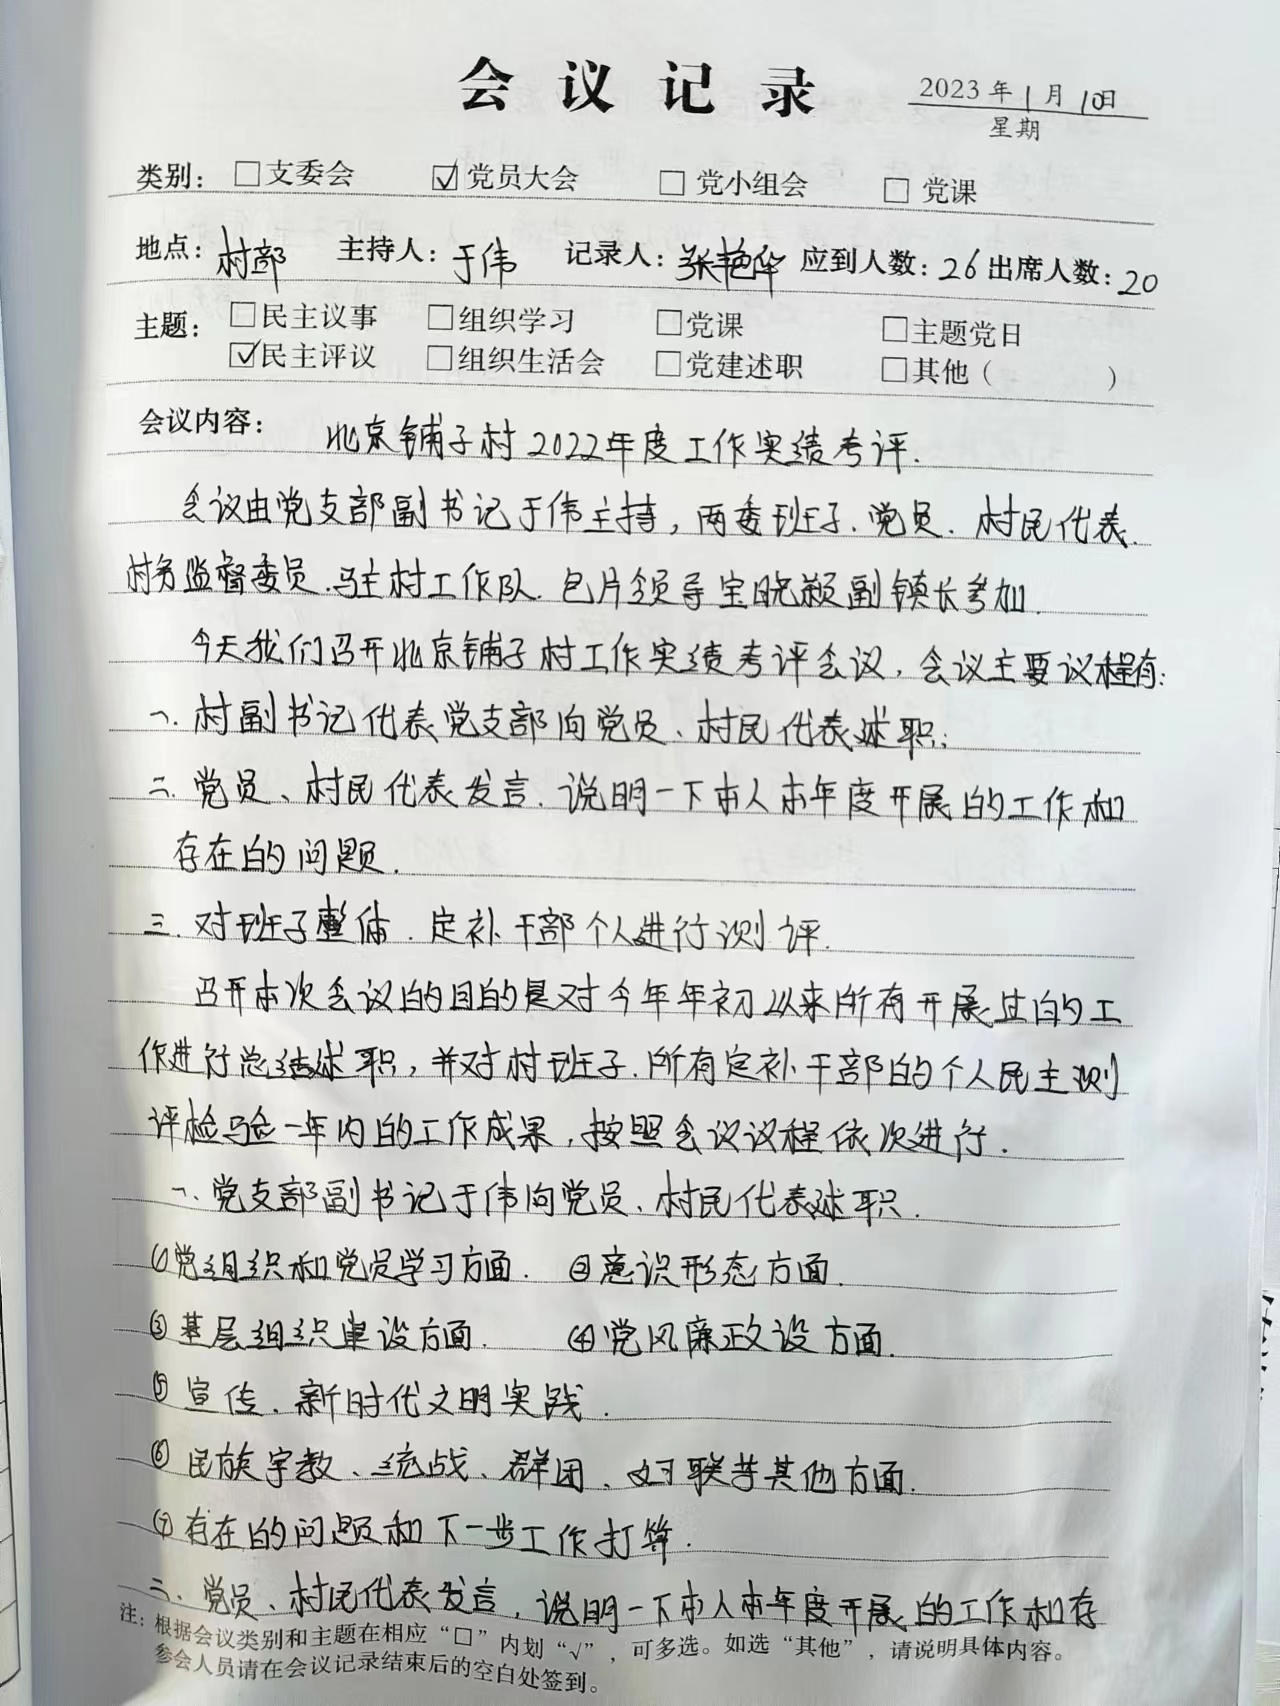 会议记录
2023年1月10日
星期
类别：□支委会 ☑党员大会 □党小组会 □党课
地点：村部 主持人：于伟 记录人：张艳华 应到人数：26 出席人数：20
主题：□民主议事 □组织学习 □党课 □主题党日
☑民主评议 □组织生活会 □党建述职 □其他（ ）
会议内容：北京铺子村2022年度工作实绩考评.
会议由党支部副书记于伟主持，两委班子、党员、村民代表、
村务监督委员、驻村工作队、包片领导宝晓颖副镇长参加.
今天我们召开北京铺子村工作实绩考评会议，会议主要议程有：
一、村副书记代表党支部向党员、村民代表述职；
二、党员、村民代表发言、说明一下本人本年度开展的工作和
存在的问题.
三、对班子整体、定补干部个人进行测评.
召开本次会议的目的是对今年年初以来所有开展过的工
作进行总结述职，并对村班子、所有定补干部的个人民主测
评检验一年内的工作成果，按照会议议程依次进行.
一、党支部副书记于伟向党员、村民代表述职.
①党组织和党员学习方面. ②意识形态方面.
③基层组织建设方面. ④党风廉政设方面.
⑤宣传、新时代文明实践.
⑥民族宗教、统战、群团、妇联等其他方面.
⑦存在的问题和下一步工作打算.
二、党员、村民代表发言，说明一下本人本年度开展的工作和存
注：根据会议类别和主题在相应“□”内划“√”，可多选。如选“其他”，请说明具体内容。
参会人员请在会议记录结束后的空白处签到。